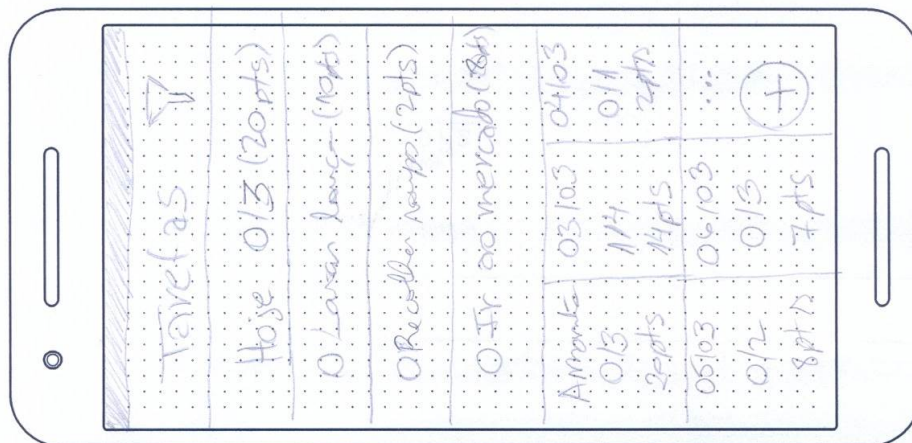 Tarefas
Hoje 0/3 (20pts)
O Lavar louça (10pts)
O Recolher roupa (2pts)
O Ir ao mercado (8pts)
Amanhã 03/03 04/03
0/3 1/4 0/1
20pts 14pts 2pts
05/03 06/03 ...
0/2 0/3
8pts 7pts +